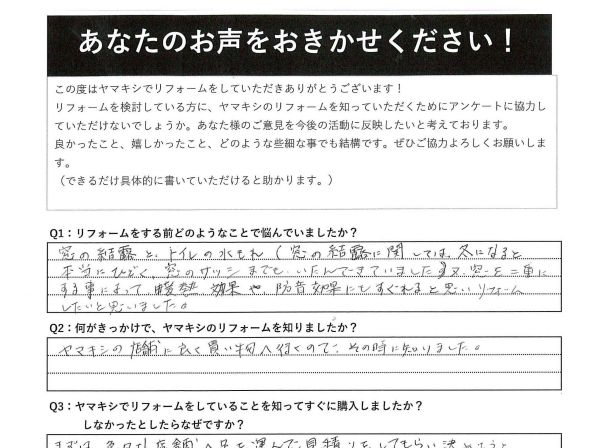 あなたのお声をおきかせください！
この度はヤマキシでリフォームをしていただきありがとうございます！
リフォームを検討している方に、ヤマキシのリフォームを知っていただくためにアンケートに協力し
ていただけないでしょうか。あなた様のご意見を今後の活動に反映したいと考えております。
良かったこと、嬉しかったこと、どのような些細な事でも結構です。ぜひご協力よろしくお願いしま
す。
（できるだけ具体的に書いていただけると助かります。）
Q1：リフォームをする前どのようなことで悩んでいましたか？
窓の結露と、トイレの水もれ（窓の結露に関しては、冬になると
本当にひどく窓のサッシまでも、いたんできていました 又、窓を二重に
する事によって暖熱効果や防音効果にもすぐれると思いリフォーム
したいと思いました。
Q2：何がきっかけで、ヤマキシのリフォームを知りましたか？
ヤマキシの店舗に良く買い物へ行くので、その時に知りました。
Q3：ヤマキシでリフォームをしていることを知ってすぐに購入しましたか？
しなかったとしたらなぜですか？
まずは、店舗へ足を運んで、見積りをしてもらい決めようと